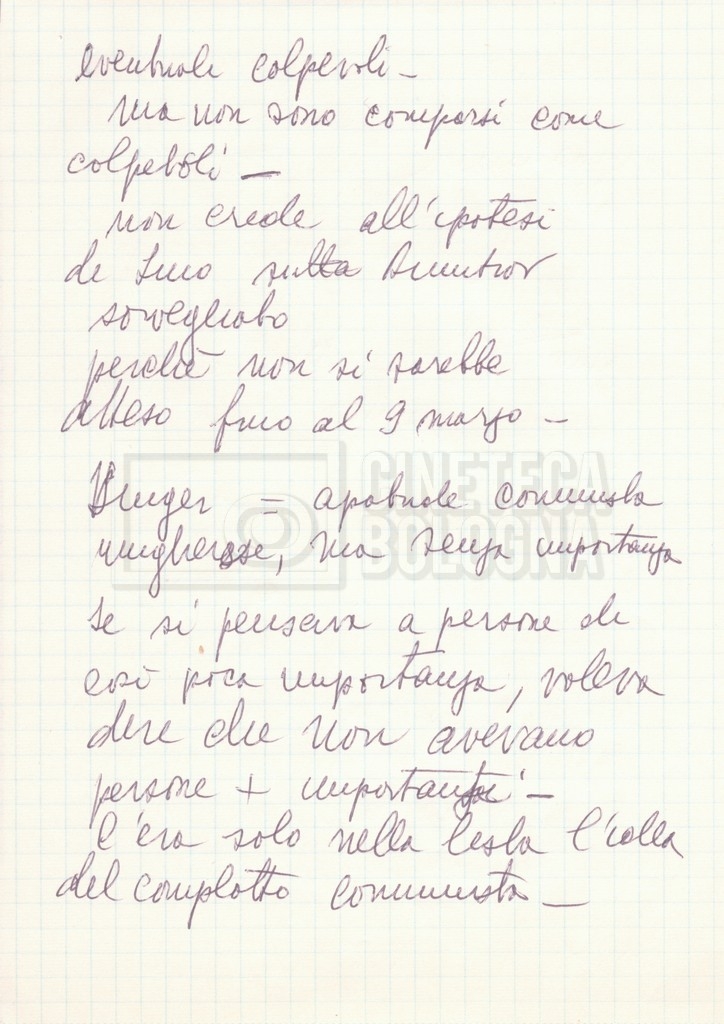 eventuali colpevoli –
ma non sono comparsi come
colpevoli –
non crede all'ipotesi
di sulla Dimitrov
sorvegliato
perché non si sarebbe
atteso fino al 9 marzo –
= comunista
ungherese, ma senza importanza
se si pensava a persone di
così poca importanza, voleva
dire che non avevano
persone + importanti –
C'era solo nella testa l'idea
del complotto comunista –
CINETECA
BOLOGNA